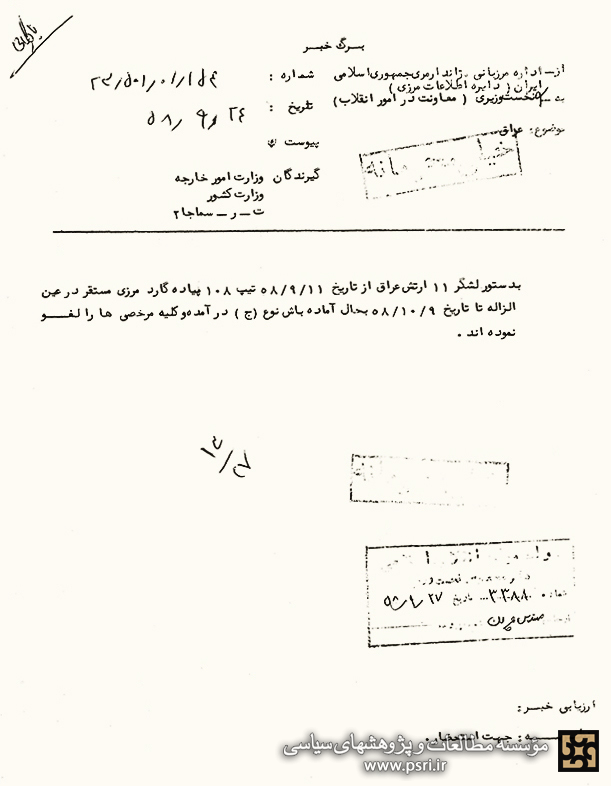 بایگانی
برگ خبر
از ـ اداره مرزبانی ـ ژاندارمری جمهوری اسلامی شماره : ۲۳/۵۰۱/۰۱/۱۵۴
ایران ( دایره اطلاعات مرزی )
به ـ نخست وزیری ( معاونت در امور انقلاب ) تاریخ : ۲۴/۹/۵۸
موضوع : عراق پیوست :
خیلی محرمانه
گیرندگان وزارت امور خارجه
وزارت کشور
ت ـ ر ـ سماجا ۲
بدستور لشگر ۱۱ ارتش عراق از تاریخ ۵۸/۹/۱۱ تیپ ۱۰۸ پیاده گارد مرزی مستقر در عین
الزاله تا تاریخ ۵۸/۱۰/۹ بحال آماده باش نوع (ج ) در آمده و کلیه مرخصی ها را لغو
نموده اند .
تاریخ ۲۷
ارزیابی خبر :
جهت استحضار .
موسسه مطالعات و پژوهشهای سیاسی
www.psri.ir